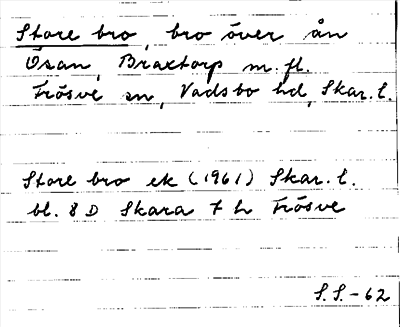 Store bro, bro över ån
Ösan, Braxtorp m.fl.
Frösve sn, Vadsbo hd, Skar. l.
Store bro ek (1961) Skar. l.
bl. 8 D Skara 7 h Frösve
S.S.-62